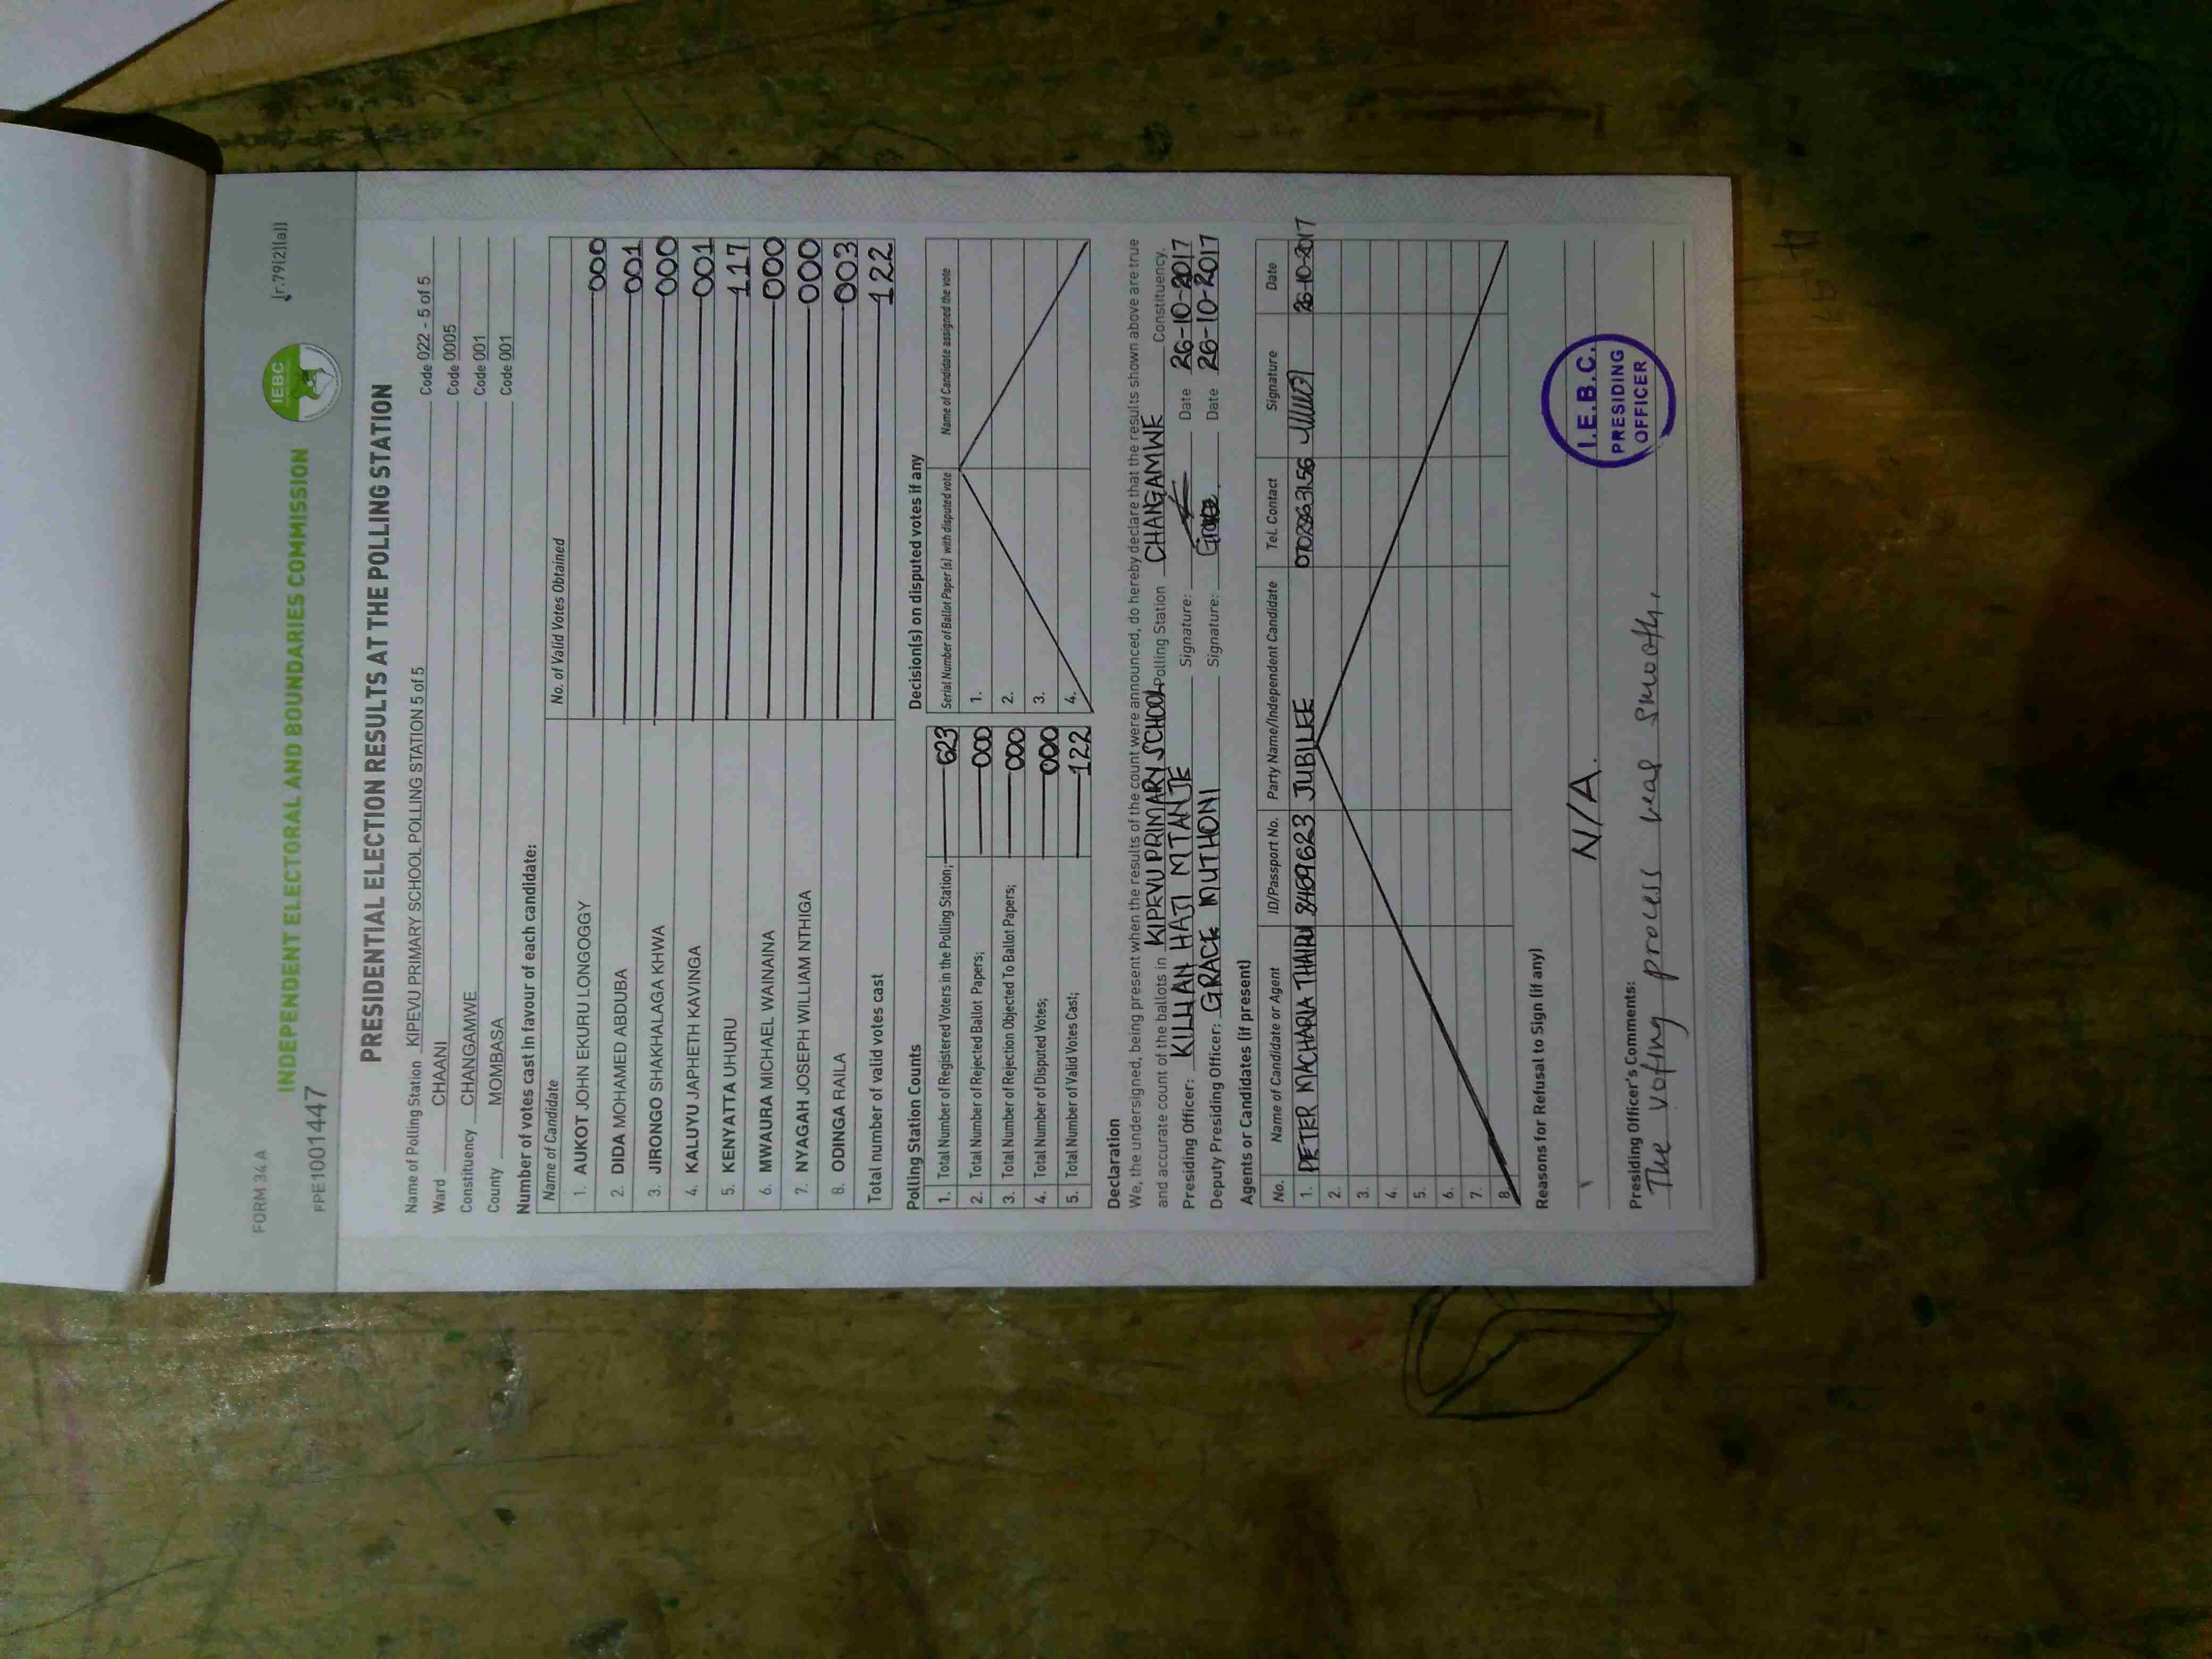 FORM 34 A
[r.79(2)(a)]
IEBC
INDEPENDENT ELECTORAL AND BOUNDARIES COMMISSION
FPE1001447
PRESIDENTIAL ELECTION RESULTS AT THE POLLING STATION
Name of Polling Station KIPEVU PRIMARY SCHOOL POLLING STATION 5 of 5 Code 022 - 5 of 5
Ward CHAANI Code 0005
Constituency CHANGAMWE Code 001
County MOMBASA Code 001
Number of votes cast in favour of each candidate:
Name of Candidate No. of Valid Votes Obtained
1. AUKOT JOHN EKURU LONGOGGY 000
2. DIDA MOHAMED ABDUBA 001
3. JIRONGO SHAKHALAGA KHWA 000
4. KALUYU JAPHETH KAVINGA 001
5. KENYATTA UHURU 117
6. MWAURA MICHAEL WAINAINA 000
7. NYAGAH JOSEPH WILLIAM NTHIGA 000
8. ODINGA RAILA 003
Total number of valid votes cast 122
Polling Station Counts
1. Total Number of Registered Voters in the Polling Station; 623
2. Total Number of Rejected Ballot Papers; 000
3. Total Number of Rejection Objected To Ballot Papers; 000
4. Total Number of Disputed Votes; 000
5. Total Number of Valid Votes Cast; 122
Decision(s) on disputed votes if any
Serial Number of Ballot Paper (s) with disputed vote Name of Candidate assigned the vote
1.
2.
3.
4.
Declaration
We, the undersigned, being present when the results of the count were announced, do hereby declare that the results shown above are true
and accurate count of the ballots in KIPEVU PRIMARY SCHOOL Polling Station CHANGAMWE Constituency.
Presiding Officer: KILLIAN HATI MTANJE Signature: Date 26-10-2017
Deputy Presiding Officer: GRACE MUTHONI Signature: Grace Date 26-10-2017
Agents or Candidates (if present)
No. Name of Candidate or Agent ID/Passport No. Party Name/Independent Candidate Tel. Contact Signature Date
1. PETER MACHARIA THAIRU 8469623 JUBILEE 26-10-2017
2.
3.
4.
5.
6.
7.
8.
Reasons for Refusal to Sign (if any)
N/A.
Presiding Officer's Comments:
The voting process was smooth.
I.E.B.C.
PRESIDING
OFFICER